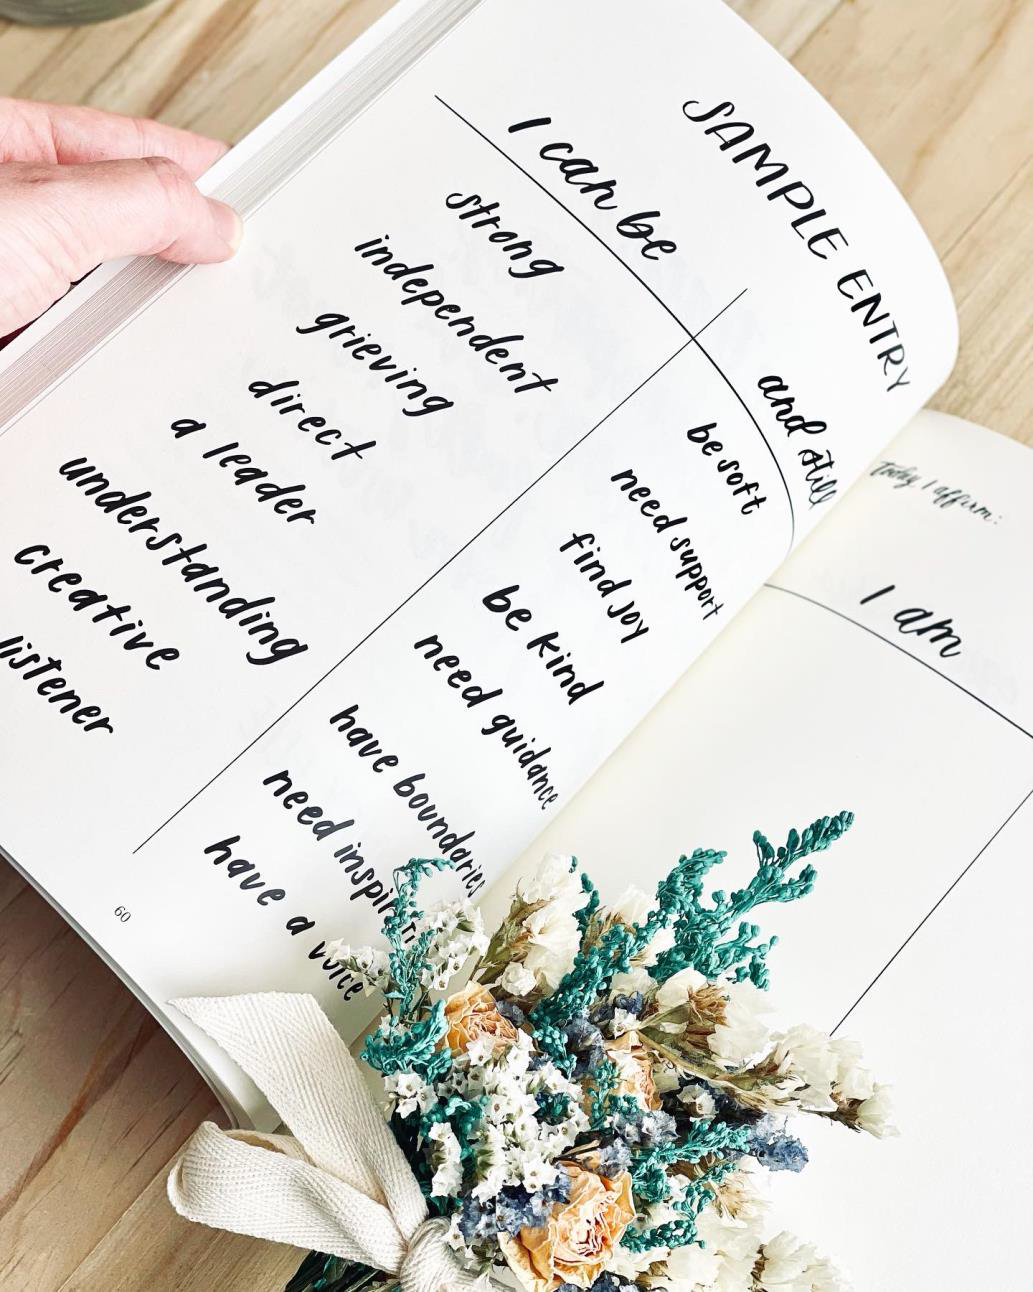 SAMPLE ENTRY
I can be
and still
strong
be soft
independent
need support
grieving
find joy
direct
be kind
a leader
need guidance
understanding
have boundaries
creative
need
listener
have a voice
60
Today I affirm:
I am